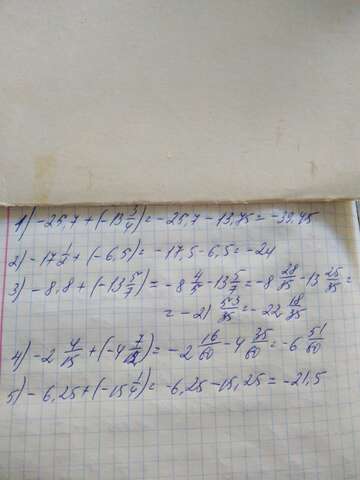 1) -25,7 + (-13 3/4) = -25,7 - 13,75 = -39,45
2) -17 1/2 + (-6,5) = -17,5 - 6,5 = -24
3) -8,8 + (-13 5/7) = -8 4/5 - 13 5/7 = -8 28/35 - 13 25/35 =
= -21 53/35 = -22 18/35
4) -2 4/15 + (-4 7/12) = -2 16/60 - 4 35/60 = -6 51/60
5) -6,25 + (-15 1/4) = -6,25 - 15,25 = -21,5